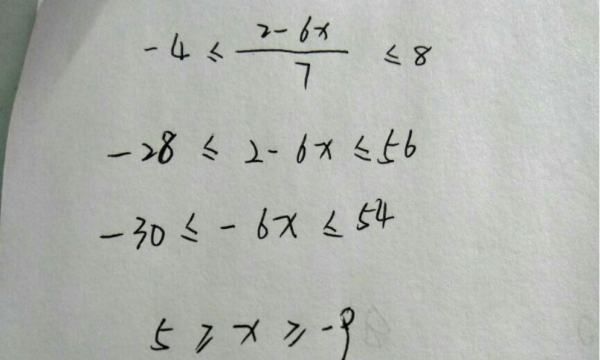 -4 ≤ (2-6x)/7 ≤ 8
-28 ≤ 2-6x ≤ 56
-30 ≤ -6x ≤ 54
5 ≥ x ≥ -9